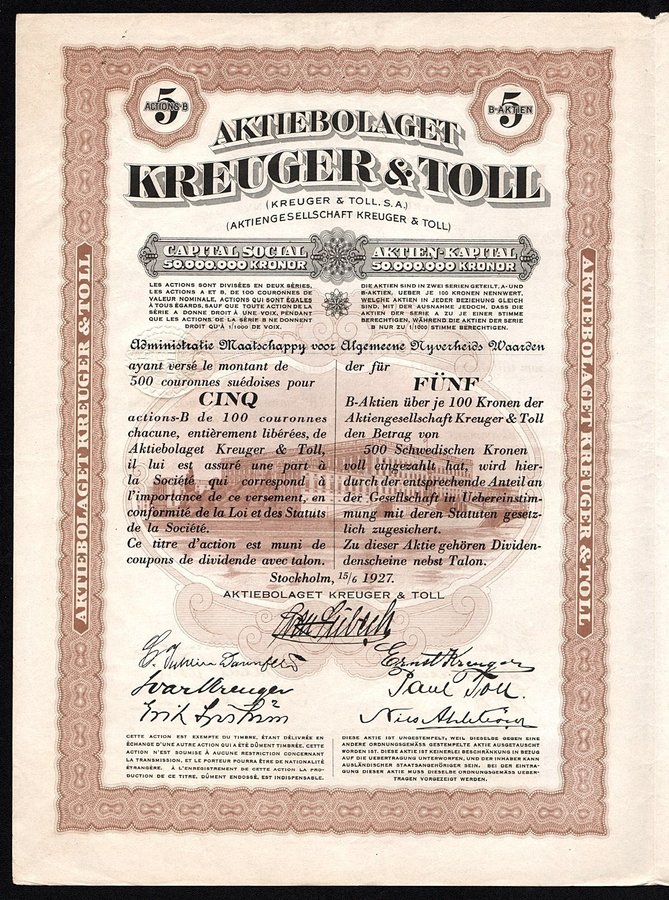 5
ACTIONS-B
5
B-AKTIEN
AKTIEBOLAGET
KREUGER & TOLL
(KREUGER & TOLL. S.A.)
(AKTIENGESELLSCHAFT KREUGER & TOLL)
CAPITAL SOCIAL
50.000.000 KRONOR
AKTIEN-KAPITAL
50.000.000 KRONOR
LES ACTIONS SONT DIVISÉES EN DEUX SÉRIES,
LES ACTIONS A ET B, DE 100 COURONNES DE
VALEUR NOMINALE, ACTIONS QUI SONT ÉGALES
À TOUS ÉGARDS, SAUF QUE TOUTE ACTION DE LA
SÉRIE A DONNE DROIT À UNE VOIX, PENDANT
QUE LES ACTIONS DE LA SÉRIE B NE DONNENT
DROIT QU'À 1/1000 DE VOIX.
DIE AKTIEN SIND IN ZWEI SERIEN GETEILT, A- UND
B-AKTIEN, UEBER JE 100 KRONEN NENNWERT,
WELCHE AKTIEN IN JEDER BEZIEHUNG GLEICH
SIND, MIT DER AUSNAHME JEDOCH, DASS DIE
AKTIEN DER SERIE A ZU JE EINER STIMME
BERECHTIGEN, WÄHREND DIE AKTIEN DER SERIE
B NUR ZU 1/1000 STIMME BERECHTIGEN.
Administratie Maatschappy voor Algemeene Nyverheids Waarden
ayant versé le montant de
500 couronnes suédoises pour
CINQ
actions-B de 100 couronnes
chacune, entièrement libérées, de
Aktiebolaget Kreuger & Toll,
il lui est assuré une part à
la Société qui correspond à
l'importance de ce versement, en
conformité de la Loi et des Statuts
de la Société.
Ce titre d'action est muni de
coupons de dividende avec talon.
der für
FÜNF
B-Aktien über je 100 Kronen der
Aktiengesellschaft Kreuger & Toll
den Betrag von
500 Schwedischen Kronen
voll eingezahlt hat, wird hier-
durch der entsprechende Anteil an
der Gesellschaft in Uebereinstim-
mung mit deren Statuten gesetz-
lich zugesichert.
Zu dieser Aktie gehören Dividen-
denscheine nebst Talon.
Stockholm, 15/6 1927.
AKTIEBOLAGET KREUGER & TOLL
Ernst Kreuger
Ivar Kreuger
Paul Toll.
CETTE ACTION EST EXEMPTE DU TIMBRE, ÉTANT DÉLIVRÉE EN
ÉCHANGE D'UNE AUTRE ACTION QUI A ÉTÉ DÛMENT TIMBRÉE. CETTE
ACTION N'EST SOUMISE À AUCUNE RESTRICTION CONCERNANT
LA TRANSMISSION, ET LE PORTEUR POURRA ÊTRE DE NATIONALITÉ
ÉTRANGÈRE. À L'ENREGISTREMENT DE CETTE ACTION LA PRO-
DUCTION DE CE TITRE, DÛMENT ENDOSSÉ, EST INDISPENSABLE.
DIESE AKTIE IST UNGESTEMPELT, WEIL DIESELBE GEGEN EINE
ANDERE ORDNUNGSGEMÄSS GESTEMPELTE AKTIE AUSGETAUSCHT
WORDEN IST. DIESE AKTIE IST KEINERLEI BESCHRÄNKUNG IN BEZUG
AUF DIE UEBERTRAGUNG UNTERWORFEN, UND DER INHABER KANN
AUSLÄNDISCHER STAATSANGEHÖRIGER SEIN. BEI DER EINTRA-
GUNG DIESER AKTIE MUSS DIESELBE ORDNUNGSGEMÄSS UEBER-
TRAGEN VORGEZEIGT WERDEN.
AKTIEBOLAGET KREUGER & TOLL
AKTIEBOLAGET KREUGER & TOLL